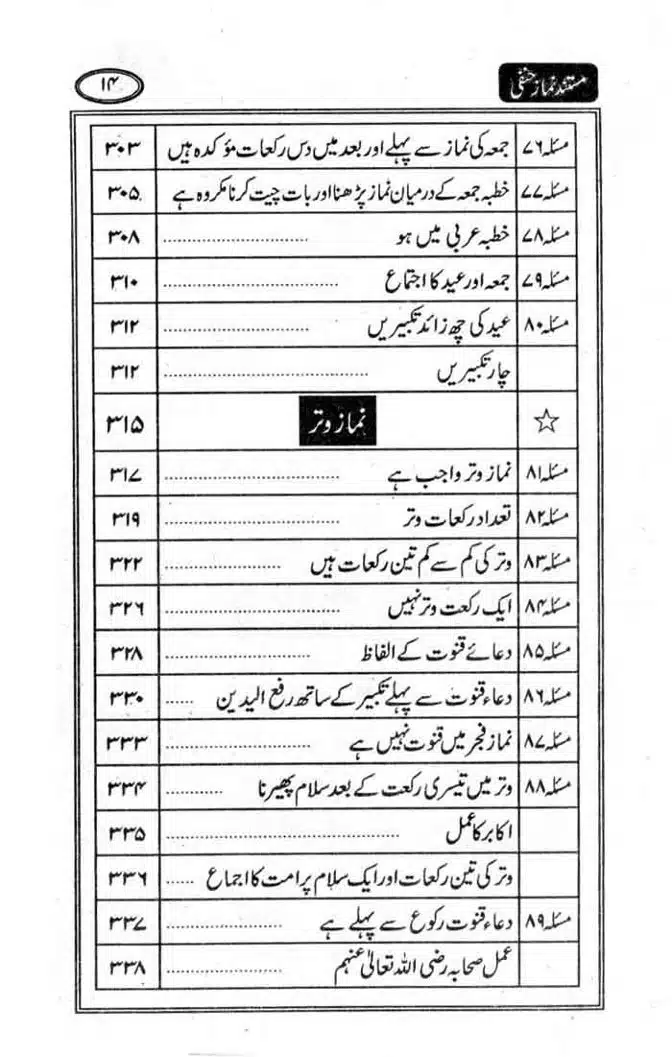 مستند نماز حنفی ۱۴
مسئلہ ۷۶ جمعہ کی نماز سے پہلے اور بعد میں دس رکعات مؤکدہ ہیں ۳۰۳
مسئلہ ۷۷ خطبہ جمعہ کے درمیان نماز پڑھنا اور بات چیت کرنا مکروہ ہے ۳۰۵
مسئلہ ۷۸ خطبہ عربی میں ہو ................................ ۳۰۸
مسئلہ ۷۹ جمعہ اور عید کا اجتماع ................................ ۳۱۰
مسئلہ ۸۰ عید کی چھ زائد تکبیریں ................................ ۳۱۲
چار تکبیریں ................................ ۳۱۲
☆ نماز وتر ۳۱۵
مسئلہ ۸۱ نماز وتر واجب ہے ................................ ۳۱۷
مسئلہ ۸۲ تعداد رکعات وتر ................................ ۳۱۹
مسئلہ ۸۳ وتر کی کم سے کم تین رکعات ہیں ..................... ۳۲۲
مسئلہ ۸۴ ایک رکعت وتر نہیں ................................ ۳۲۶
مسئلہ ۸۵ دعائے قنوت کے الفاظ ........................... ۳۲۸
مسئلہ ۸۶ دعاء قنوت سے پہلے تکبیر کے ساتھ رفع الیدین ...... ۳۳۰
مسئلہ ۸۷ نماز فجر میں قنوت نہیں ہے ........................... ۳۳۳
مسئلہ ۸۸ وتر میں تیسری رکعت کے بعد سلام پھیرنا ........... ۳۳۴
اکابر کا عمل ........................................... ۳۳۵
وتر کی تین رکعات اور ایک سلام پر امت کا اجماع ...... ۳۳۶
مسئلہ ۸۹ دعاء قنوت رکوع سے پہلے ہے ..................... ۳۳۷
عمل صحابہ رضی اللہ تعالیٰ عنہم ..................... ۳۳۸